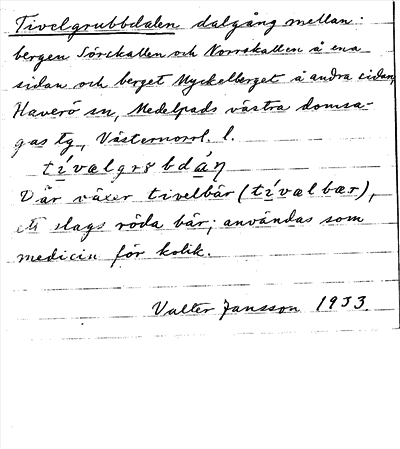 Tivelgrubbdalen dalgång mellan
bergen Sörckallen och Norrskallen å ena
sidan och berget Myckelberget å andra cidan,
Haverö sn, Medelpads västra domsa-
gas tg, Västernorrl. l.
tívælgrʚbdáη
Där växer tivelbär (tívælbær),
ett slags röda bär; användas som
medicin för kolik.
Valter Jansson 1933.